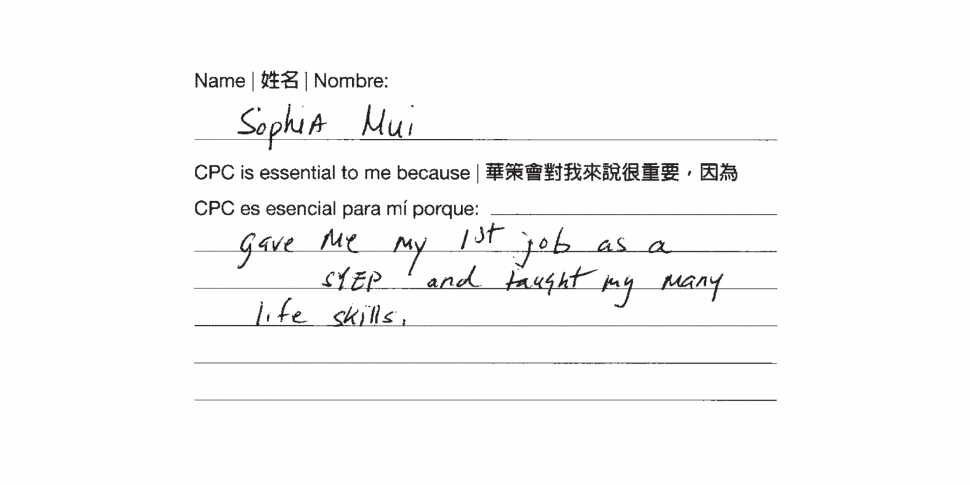 Name | 姓名 | Nombre:
SophiA Mui
CPC is essential to me because | 華策會對我來說很重要，因為
CPC es esencial para mí porque:
gave Me my 1st job as a
SYEP and taught my many
life skills.